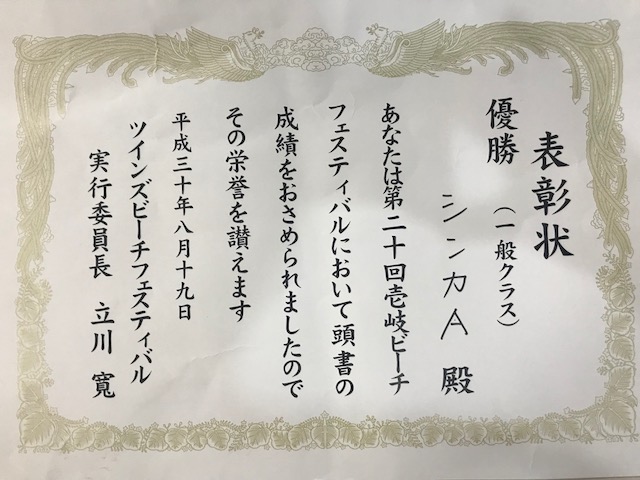 表彰状
優勝 （一般クラス）
シンカA 殿
あなたは第二十回壱岐ビーチ
フェスティバルにおいて頭書の
成績をおさめられましたので
その栄誉を讃えます
平成三十年八月十九日
ツインズビーチフェスティバル
実行委員長 立川 寛